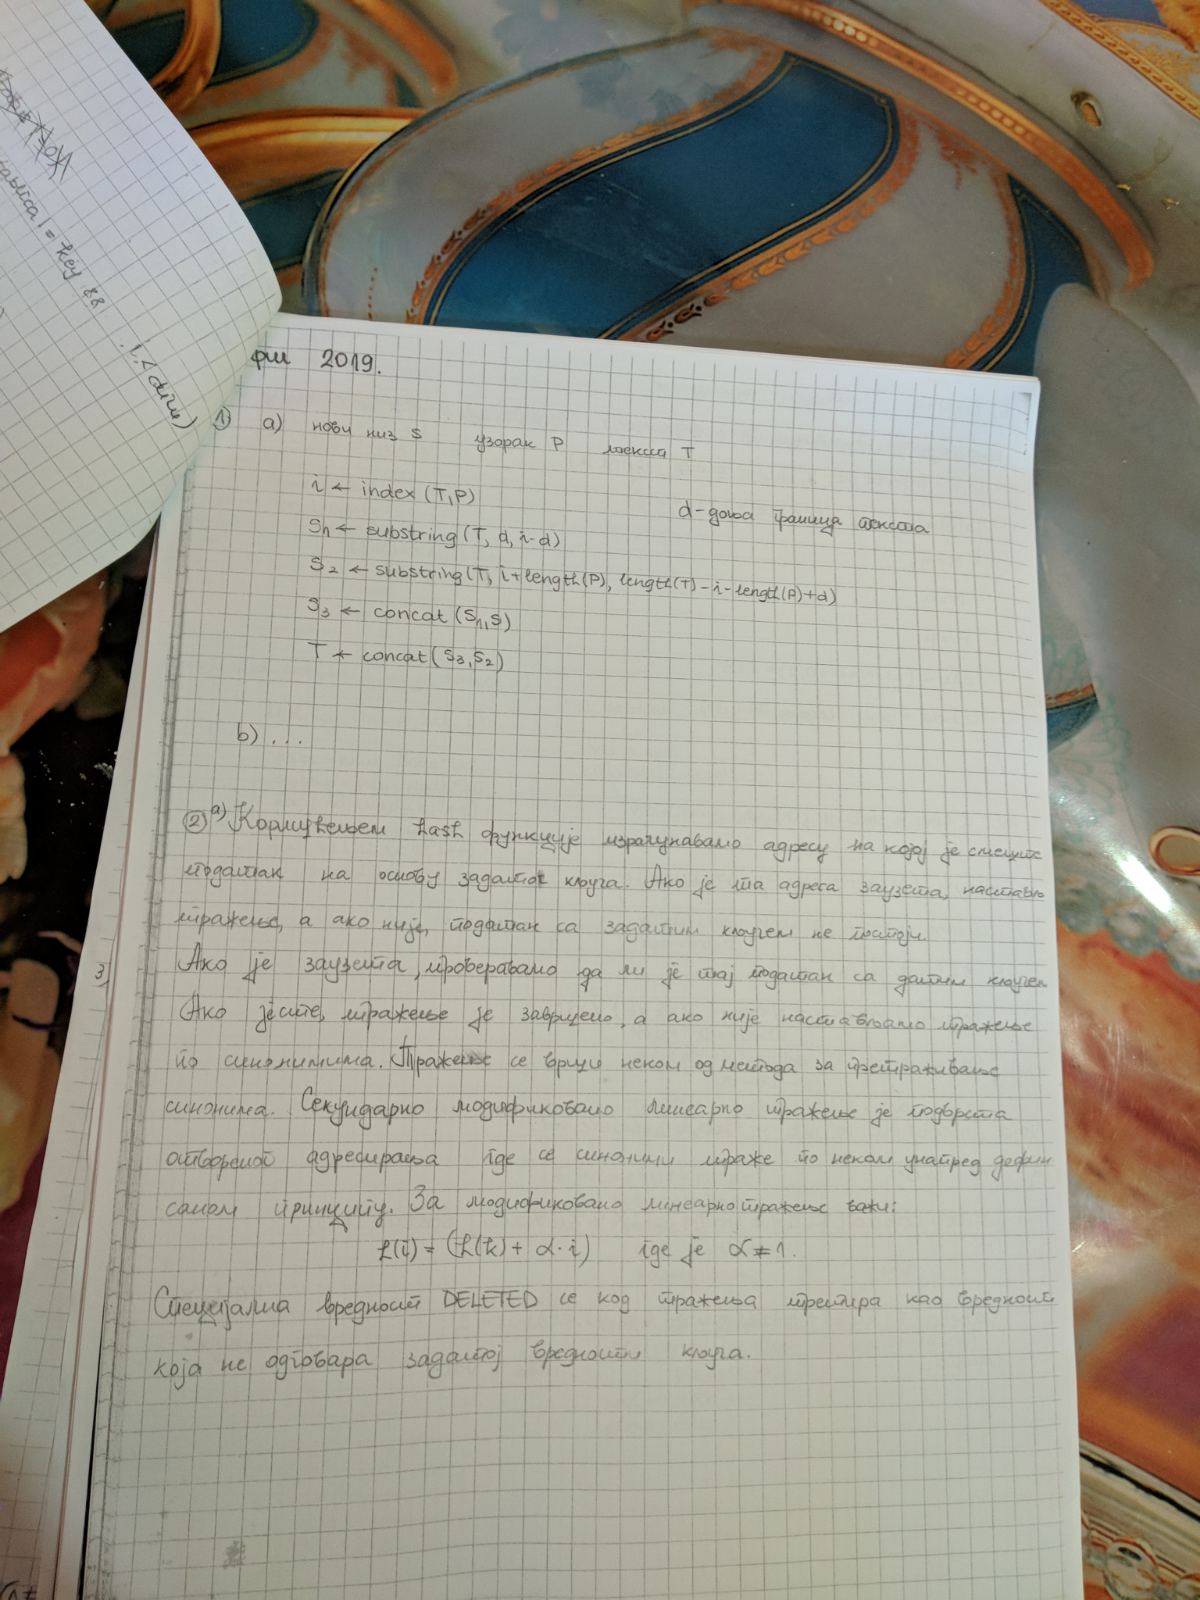 2019.
1) a) нови низ S узорак P текст T
i ← index (T,P)
d - доња граница текста
S1 ← substring (T, d, i-d)
S2 ← substring (T, i+length(P), length(T)-i-length(P)+d)
S3 ← concat (S1,S)
T ← concat (S3,S2)
b) ...
2) a) Коришћењем hash функције израчунавамо адресу на којој је
податак на основу задатог кључа. Ако је та адреса заузета,
тражење, а ако није, податак са задатим кључем не постоји.
Ако је заузета, проверавамо да ли је тај податак са датим кључем
Ако јесте, тражење је завршено, а ако није настављамо тражење
по синонимима. Тражење се врши неком од метода за претраживање
синонима. Секундарно модификовано линеарно тражење је подврста
отвореног адресирања где се синоними траже по неком унапред дефин
саном принципу. За модификовано линеарно тражење важи:
h(i) = (h(k) + α·i) где је α ≠ 1.
Специјална вредност DELETED се код тражења третира као вредност
која не одговара задатој вредности кључа.
3,
tablica != key &&